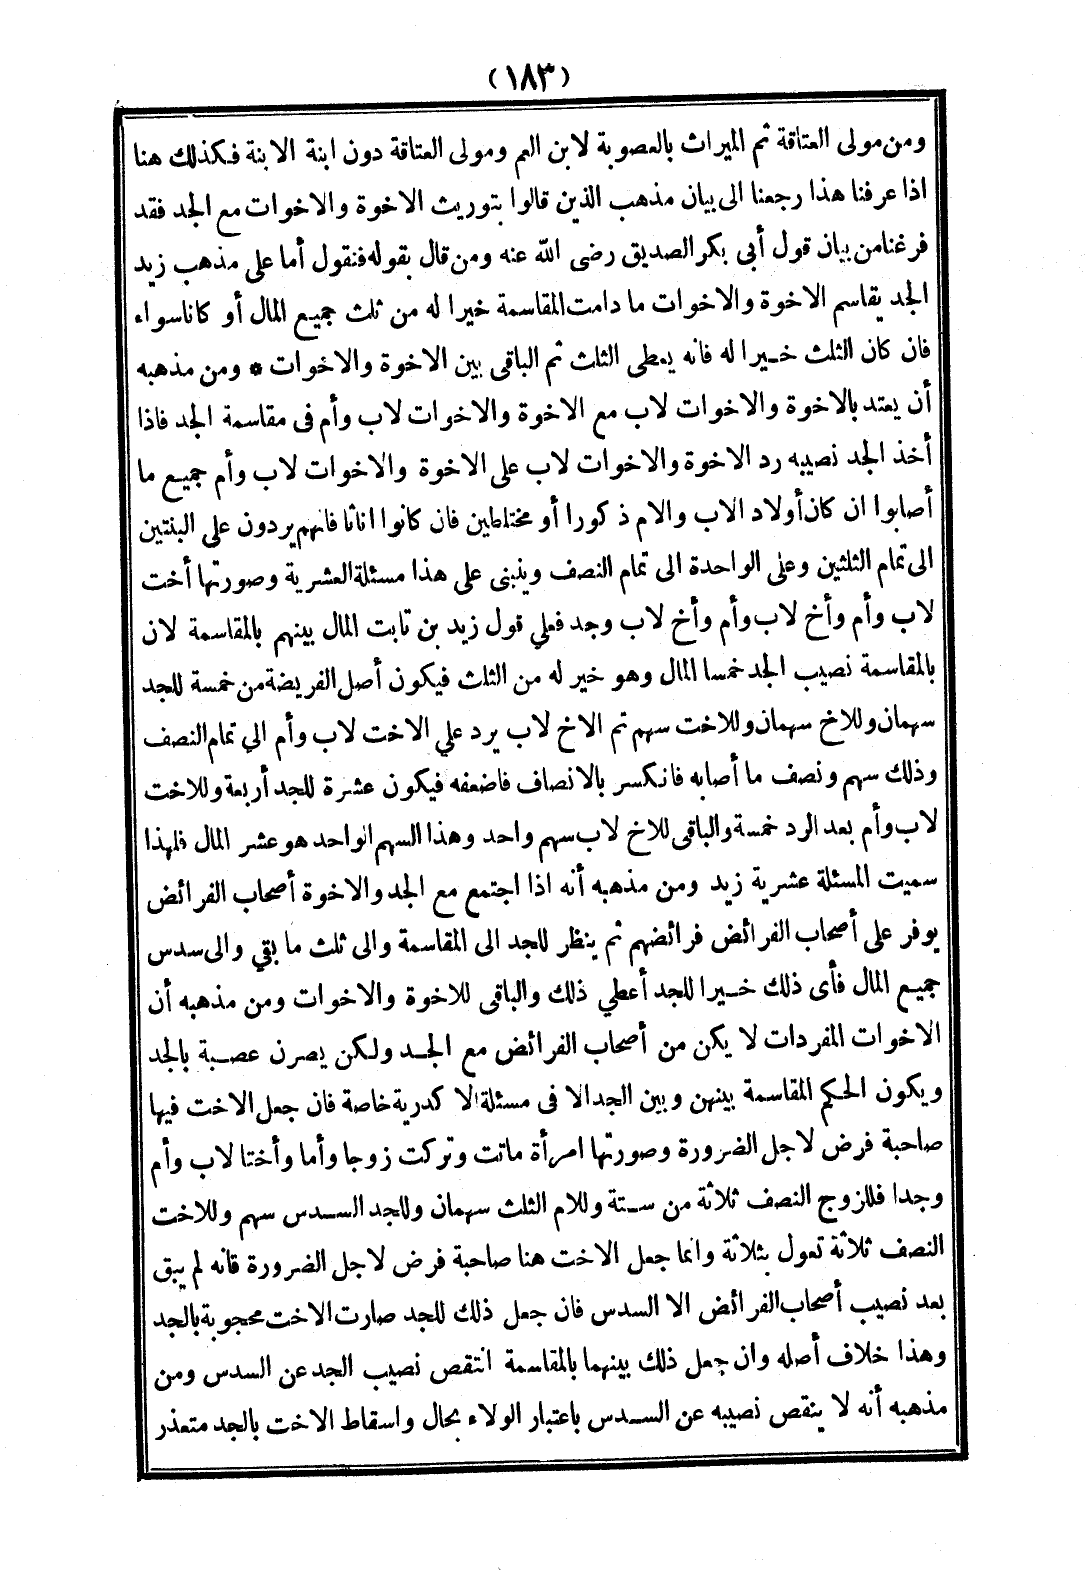 (١٨٣)
ومن مولى العتاقة ثم الميراث بالعصوبة لابن العم ومولى العتاقة دون ابنة الابنة فكذلك هنا
اذا عرفنا هذا رجعنا الى بيان مذهب الذين قالوا بتوريث الاخوة والاخوات مع الجد فقد
فرغنا من بيان قول أبي بكر الصديق رضى الله عنه ومن قال بقوله فنقول أما على مذهب زيد
الجد يقاسم الاخوة والاخوات ما دامت المقاسمة خيرا له من ثلث جميع المال أو كانا سواء
فان كان الثلث خيرا له فانه يعطى الثلث ثم الباقى بين الاخوة والاخوات * ومن مذهبه
أن يعتد بالاخوة والاخوات لاب مع الاخوة والاخوات لاب وأم فى مقاسمة الجد فاذا
أخذ الجد نصيبه رد الاخوة والاخوات لاب على الاخوة والاخوات لاب وأم جميع ما
أصابوا ان كان أولاد الاب والام ذكورا أو مختلطين فان كانوا اناثا فانهم يردون على البنتين
الى تمام الثلثين وعلى الواحدة الى تمام النصف وينبنى على هذا مسئلة العشرية وصورتها أخت
لاب وأم وأخ لاب وأم وأخ لاب وجد فعلي قول زيد بن ثابت المال بينهم بالمقاسمة لان
بالمقاسمة نصيب الجد خمسا المال وهو خير له من الثلث فيكون أصل الفريضة من خمسة للجد
سهمان وللاخ سهمان وللاخت سهم ثم الاخ لاب يرد علي الاخت لاب وأم الي تمام النصف
وذلك سهم ونصف ما أصابه فانكسر بالانصاف فاضعفه فيكون عشرة للجد أربعة وللاخت
لاب وأم بعد الرد خمسة والباقى للاخ لاب سهم واحد وهذا السهم الواحد هو عشر المال فلهذا
سميت المسئلة عشرية زيد ومن مذهبه أنه اذا اجتمع مع الجد والاخوة أصحاب الفرائض
يوفر على أصحاب الفرائض فرائضهم ثم ينظر للجد الى المقاسمة والى ثلث ما بقي والى سدس
جميع المال فأى ذلك خيرا للجد أعطي ذلك والباقى للاخوة والاخوات ومن مذهبه أن
الاخوات المفردات لا يكن من أصحاب الفرائض مع الجد ولكن يصرن عصبة بالجد
ويكون الحكم المقاسمة بينهن وبين الجد الا فى مسئلة الا كدرية خاصة فان جعل الاخت فيها
صاحبة فرض لاجل الضرورة وصورتها امرأة ماتت وتركت زوجا وأما وأختا لاب وأم
وجدا فللزوج النصف ثلاثة من ستة وللام الثلث سهمان وللجد السدس سهم وللاخت
النصف ثلاثة تعول بثلاثة وانما جعل الاخت هنا صاحبة فرض لاجل الضرورة فانه لم يبق
بعد نصيب أصحاب الفرائض الا السدس فان جعل ذلك للجد صارت الاخت محجوبة بالجد
وهذا خلاف أصله وان جعل ذلك بينهما بالمقاسمة انتقص نصيب الجد عن السدس ومن
مذهبه أنه لا ينقص نصيبه عن السدس باعتبار الولاء بحال واسقاط الاخت بالجد متعذر